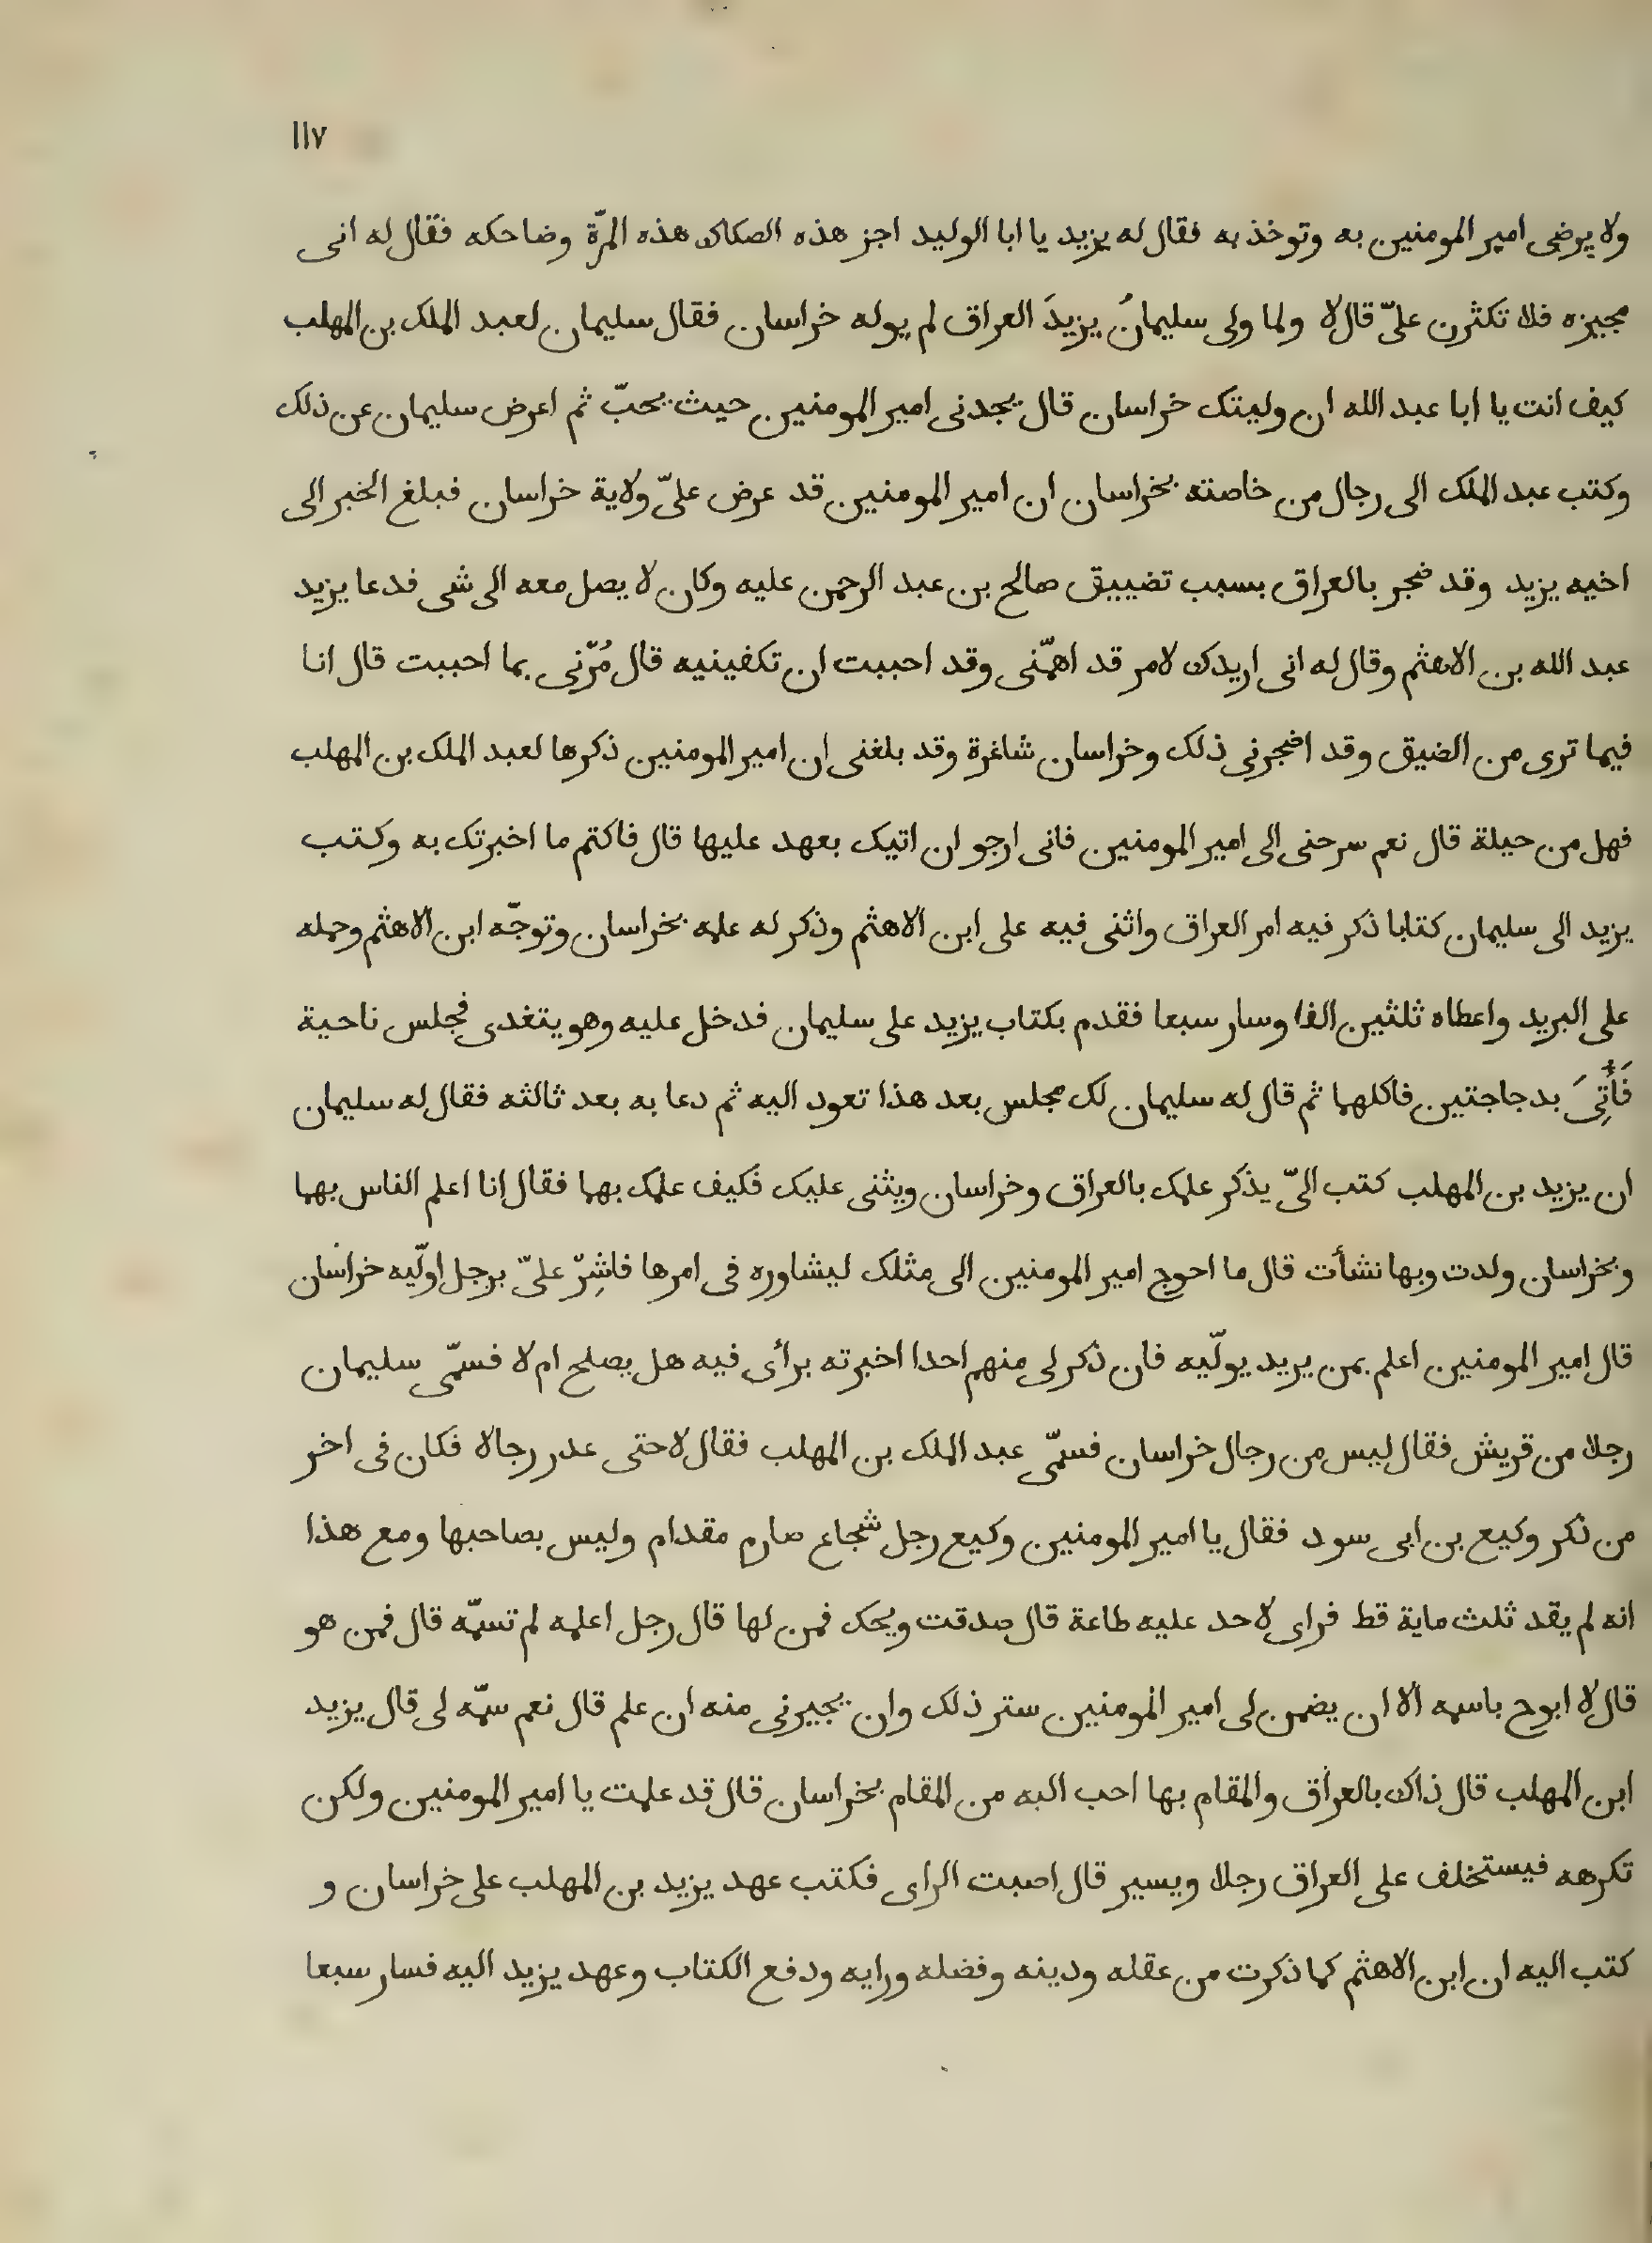 ١١٧
ولا يرضى امير المومنين به وتوخذ به فقال له يزيد يا ابا الوليد اجز هذه الصكاك هذه المرّة وضاحكه فقال له انى
مجيزه فلا تكثرن علىّ قال لا ولما ولى سليمانُ يزيدَ العراق لم يوله خراسان فقال سليمان لعبد الملك بن المهلب
كيف انت يا ابا عبد الله ان وليتك خراسان قال يجدنى امير المومنين حيث يحبّ ثم اعرض سليمان عن ذلك
وكتب عبد الملك الى رجال من خاصته بخراسان ان امير المومنين قد عرض علىّ ولاية خراسان فبلغ الخبر الى
اخيه يزيد وقد ضجر بالعراق بسبب تضييق صالح بن عبد الرحمن عليه وكان لا يصل معه الى شى فدعا يزيد
عبد الله بن الاهثم وقال له انى اريدك لامر قد اهمّنى وقد احببت ان تكفينيه قال مُرْنى بما احببت قال انا
فيما ترى من الضيق وقد اضجرنى ذلك وخراسان شاغرة وقد بلغنى ان امير المومنين ذكرها لعبد الملك بن المهلب
فهل من حيلة قال نعم سرحنى الى امير المومنين فانى ارجو ان اتيك بعهد عليها قال فاكتم ما اخبرتك به وكتب
يزيد الى سليمان كتابا ذكر فيه امر العراق واثنى فيه على ابن الاهثم وذكر له علمه بخراسان وتوجّه ابن الاهثم وحمله
على البريد واعطاه ثلثين الفا وسار سبعا فقدم بكتاب يزيد على سليمان فدخل عليه وهو يتغدى فجلس ناحية
فَأُتِىَ بدجاجتين فاكلهما ثم قال له سليمان لك مجلس بعد هذا تعود اليه ثم دعا به بعد ثالثه فقال له سليمان
ان يزيد بن المهلب كتب الىّ يذكر علمك بالعراق وخراسان ويثنى عليك فكيف علمك بهما فقال انا اعلم الناس بهما
وبخراسان ولدت وبها نشأت قال ما احوج امير المومنين الى مثلك ليشاوره فى امرها فاشِرْ علىّ برجل اولّيه خراسان
قال امير المومنين اعلم بمن يريد يولّيه فان ذكر لى منهم احدا اخبرته برأى فيه هل يصلح ام لا فسمّى سليمان
رجلا من قريش فقال ليس من رجال خراسان فسمّى عبد الملك بن المهلب فقال لا حتى عدر رجالا فكان فى اخر
من ذكر وكيع بن ابى سود فقال يا امير المومنين وكيع رجل شجاع صارم مقدام وليس بصاحبها ومع هذا
انه لم يقد ثلث ماية قط فراى لاحد عليه طاعة قال صدقت ويحك فمن لها قال رجل اعلمه لم تسمّه قال فمن هو
قال لا ابوح باسمه الا ان يضمن لى امير المومنين ستر ذلك وان يجيرنى منه ان علم قال نعم سمّه لى قال يزيد
ابن المهلب قال ذاك بالعراق والمقام بها احب اليه من المقام بخراسان قال قد علمت يا امير المومنين ولكن
تكرهه فيستخلف على العراق رجلا ويسير قال اصبت الراى فكتب عهد يزيد بن المهلب على خراسان و
كتب اليه ان ابن الاهثم كما ذكرت من عقله ودينه وفضله ورايه ودفع الكتاب وعهد يزيد اليه فسار سبعا